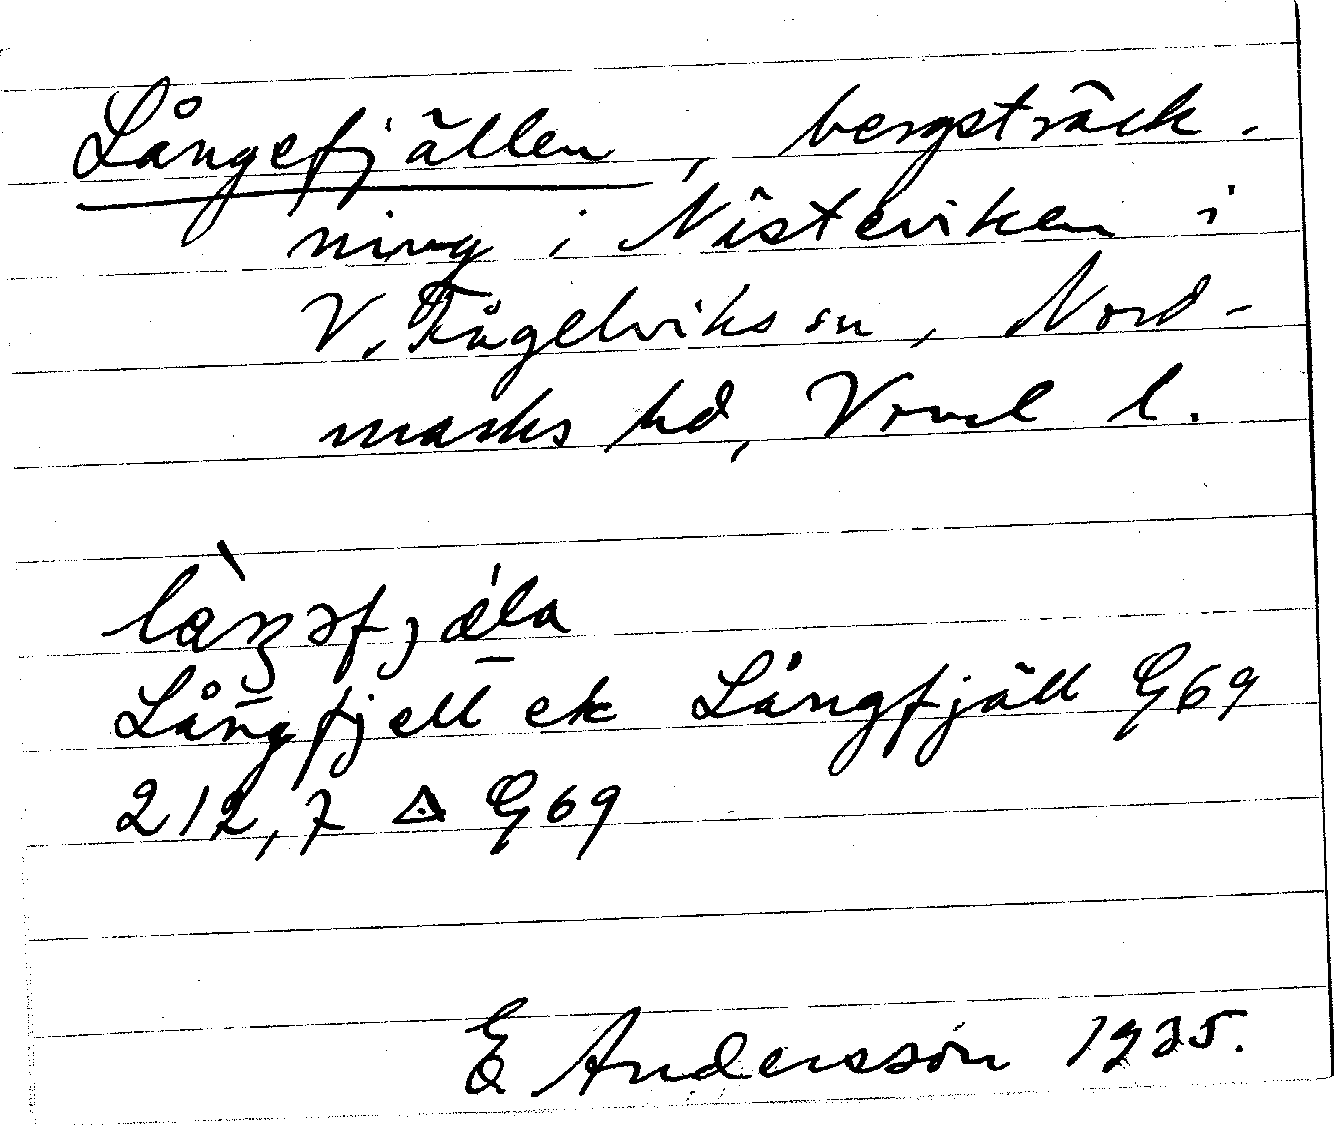 Långefjällen, bergsträck-
ning i Nästeviken i
V. Fågelviks sn, Nord-
marks hd, Vrml l.
làŋəfjǽla
Långfjell ek Långfjäll G69
212,7 △ G69
E Andersson 1935.